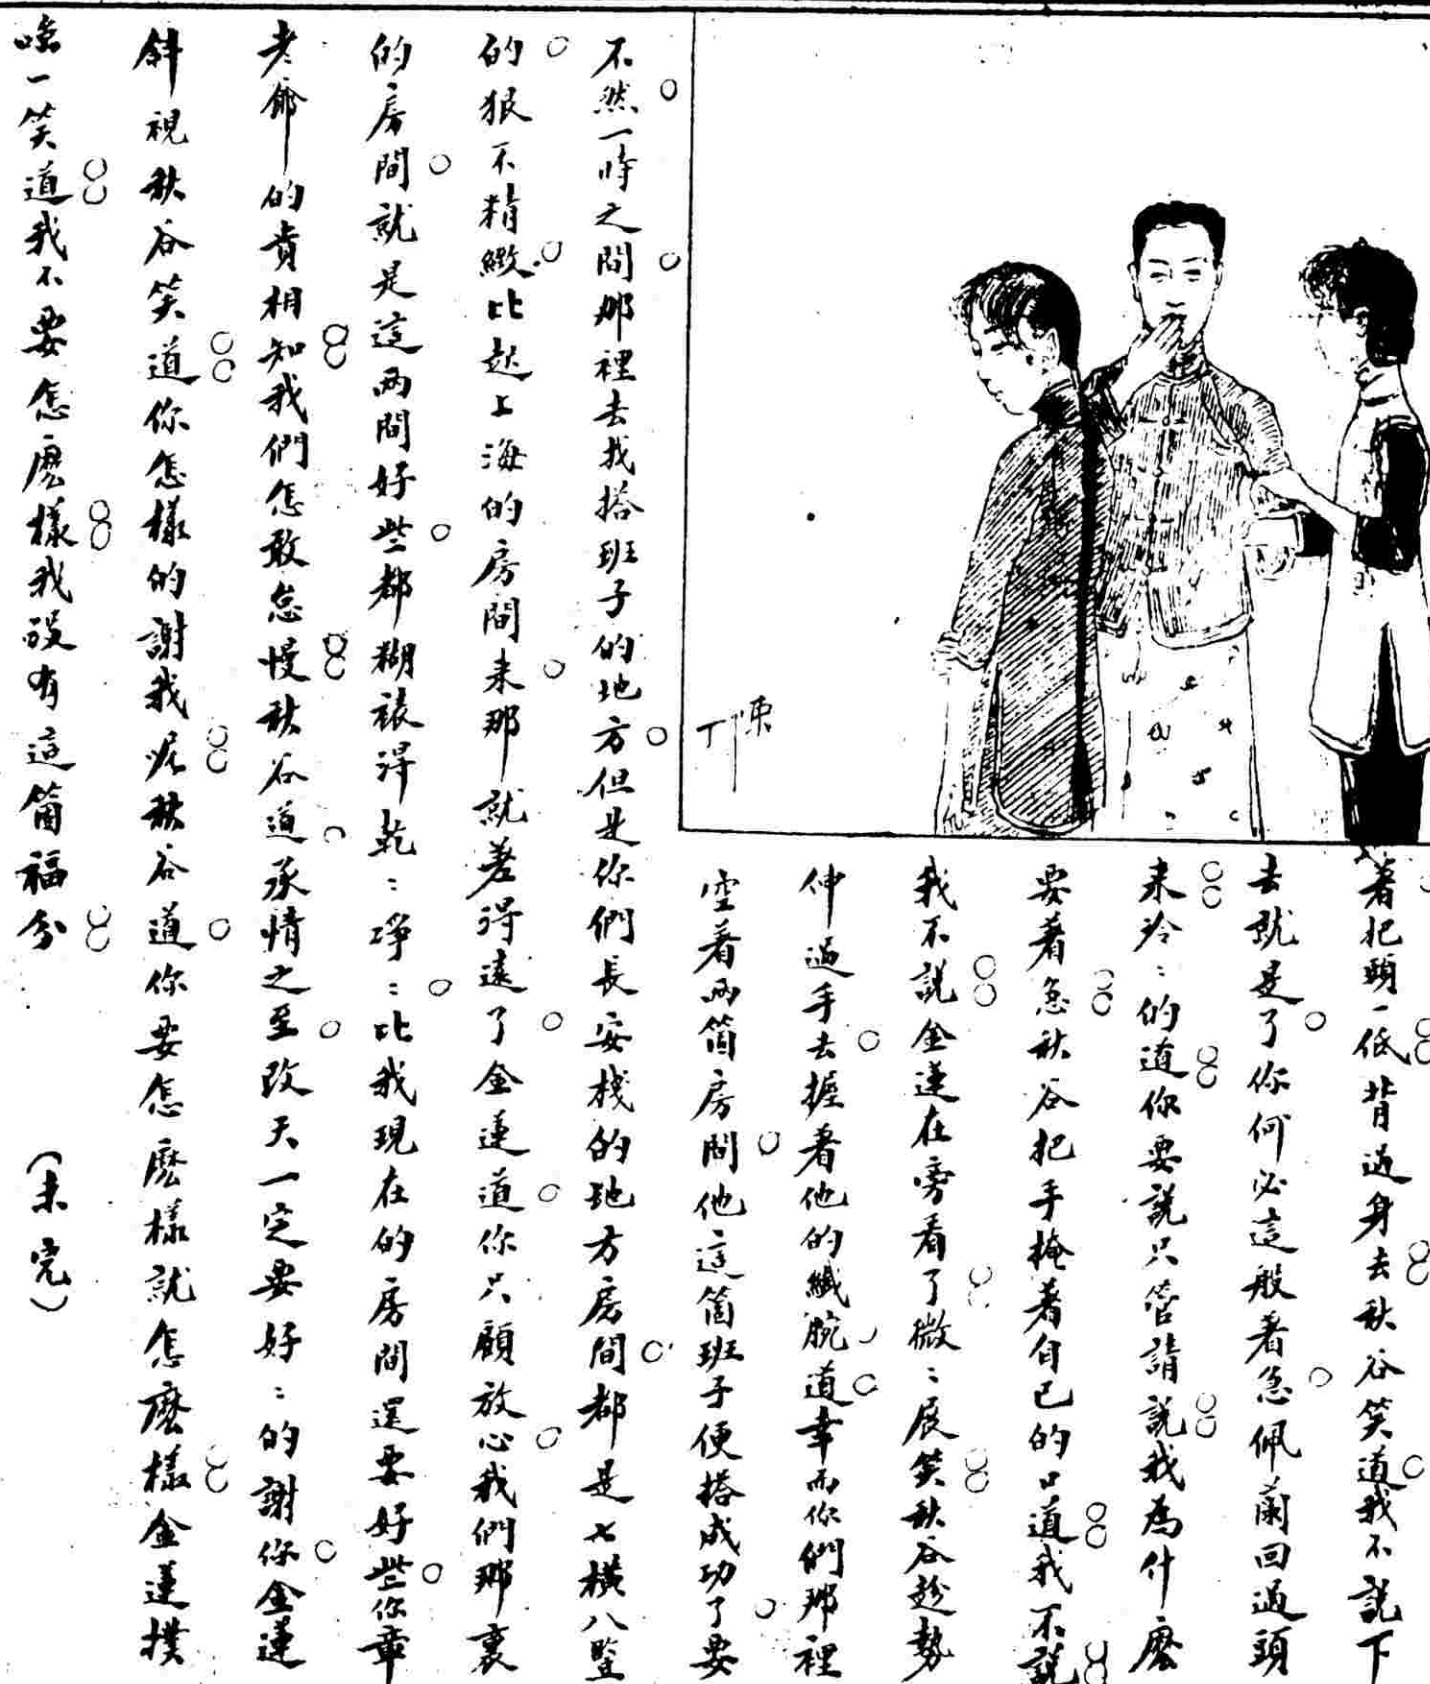 著把頭一低背過身去秋谷笑道我不說下
去就是了你何必這般著急佩蘭回過頭
来冷〻的道你要說只管請說我為什麽
要著急秋谷把手掩著自己的口道我不說
我不說金蓮在旁看了微〻展笑秋谷趁勢
伸過手去握着他的纖腕道幸而你們那裡
空着两箇房間他這箇班子便搭成功了要
不然一時之間那裡去找搭班子的地方但是你們長安棧的地方房間都是七橫八豎
的狠不精緻比起上海的房間来那就差得遠了金蓮道你只顧放心我們那裏
的房間就是這两間好些都糊裱得乾〻淨〻比我現在的房間還要好些你章
老爺的貴相知我們怎敢怠慢秋谷道承情之至改天一定要好〻的謝你金蓮
斜視秋谷笑道你怎樣的謝我呢秋谷道你要怎麽樣就怎麽樣金蓮撲
嗤一笑道我不要怎麽樣我沒有這箇福分
（未完）